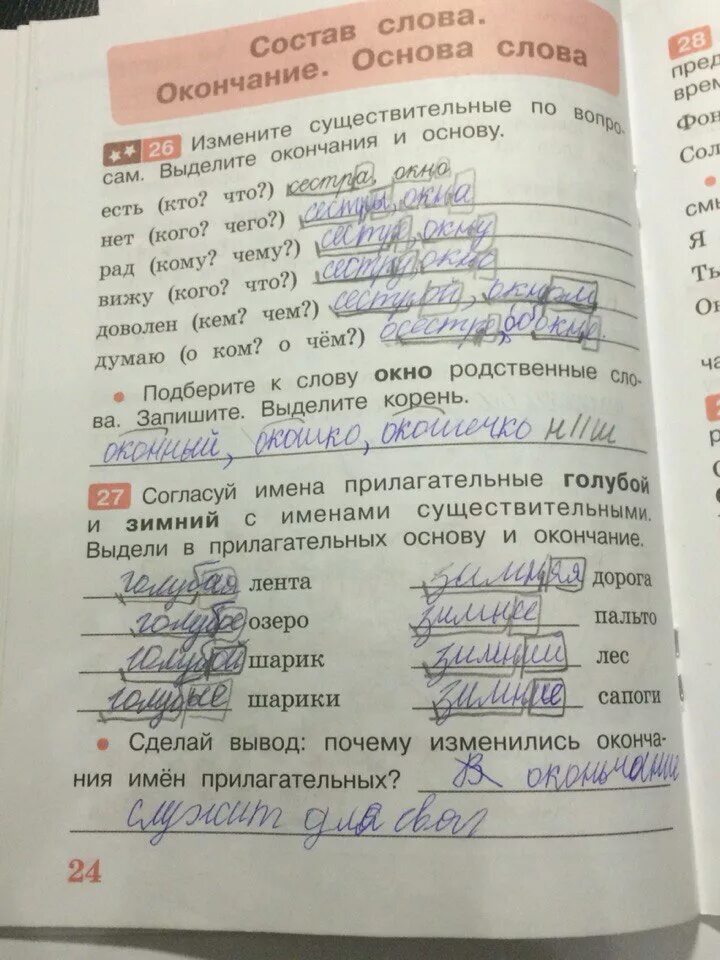 Состав слова.
Окончание. Основа слова
26 Измените существительные по вопро-
сам. Выделите окончания и основу.
есть (кто? что?) сестра, окно
нет (кого? чего?) сестры, окна
рад (кому? чему?) сестре, окну
вижу (кого? что?) сестру, окно
доволен (кем? чем?) сестрой, окном
думаю (о ком? о чём?) о сестре, об окне.
• Подберите к слову окно родственные сло-
ва. Запишите. Выделите корень.
оконный, окошко, окошечко н//ш
27 Согласуй имена прилагательные голубой
и зимний с именами существительными.
Выдели в прилагательных основу и окончание.
голубая лента зимняя дорога
голубое озеро зимнее пальто
голубой шарик зимний лес
голубые шарики зимние сапоги
• Сделай вывод: почему изменились оконча-
ния имён прилагательных?
служит для
24
28
пред
врем
Фон
Сол
•
смы
Я
Ты
Он
ча